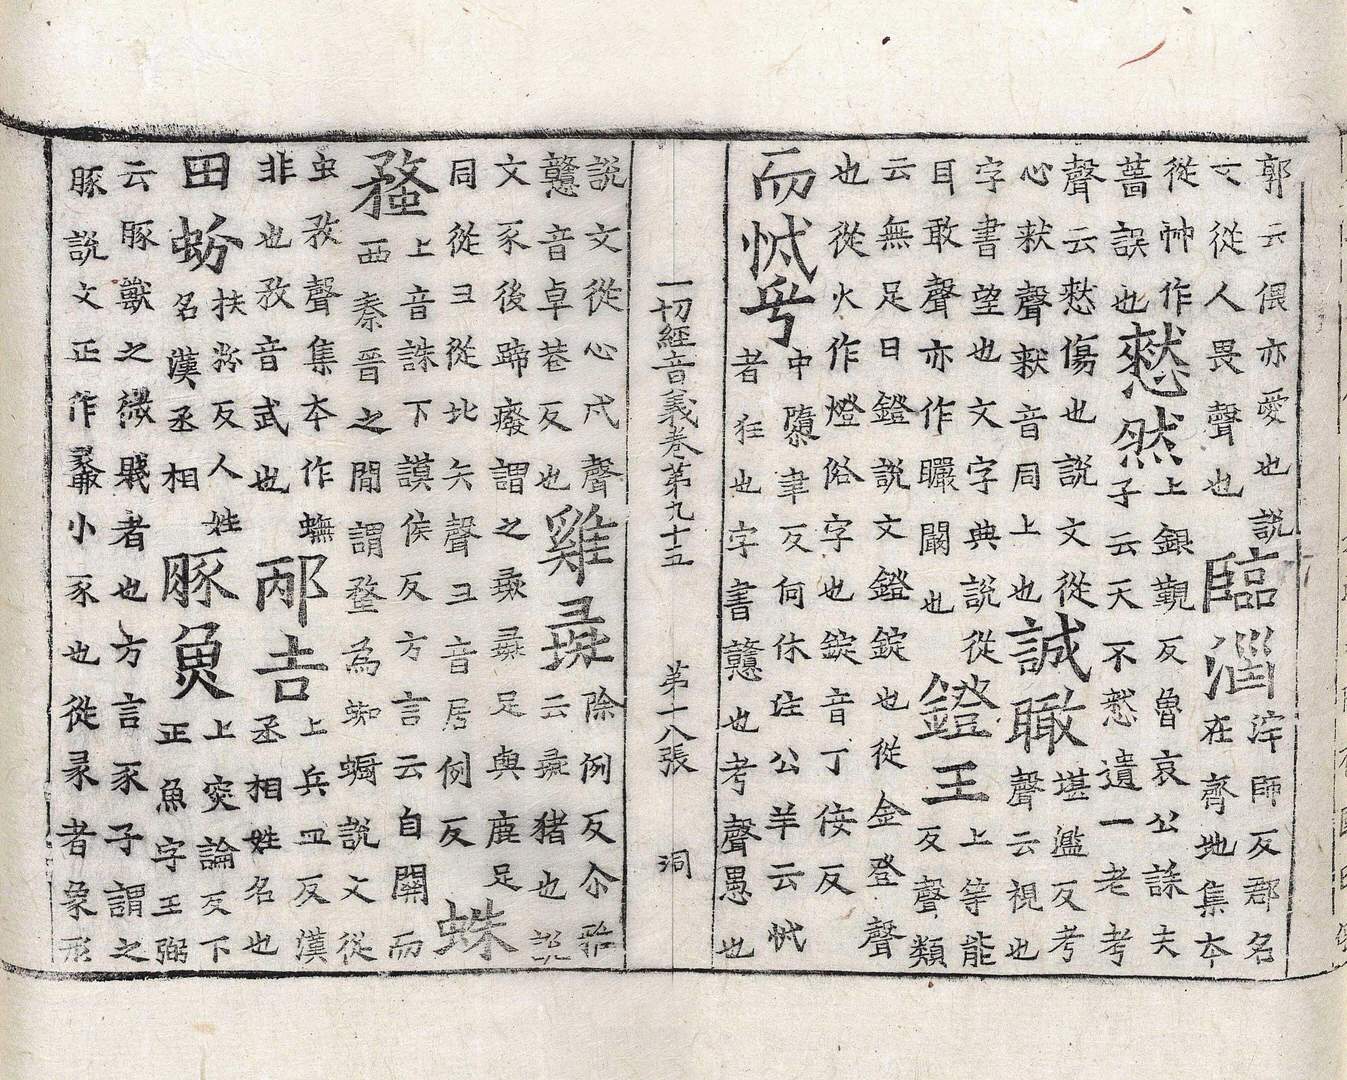 郭云偎亦愛也說文從人畏聲也臨淄滓師反郡名在齊地集本
從艸作薔誤也憖然上銀覲反魯哀公誄夫子云天不憖遺一老考
聲云憖傷也說文從心猌聲猌音同上也誠瞰堪濫反考聲云視也
字書望也文字典說從目敢聲亦作矙闞也鐙王上等能反聲類
云無足曰鐙說文鐙錠也從金登聲也從火作燈俗字也錠音丁佞反
而怴兮中隳聿反何休注公羊云怴者狂也字書戇也考聲愚也
一切經音義卷第九十五 第十八張 洞
說文從心戉聲戇音卓巷反也雞彘除例反尒雅云彘猪也說
文豕後蹄癈謂之彘彘足與鹿足同從彑從比矢聲彑音居例反蛛
蝥上音誅下謨侯反方言云自關而西秦晉之間謂蝥為蜘蟵說文從
虫敄聲集本作蟱非也敄音武也邴吉上兵皿反漢丞相姓名也
田蚡扶粉反人姓名漢丞相豚魚上突論反下正魚字王弼
云豚獸之微賤者也方言豕子謂之豚說文正作小豕也從彖者象形